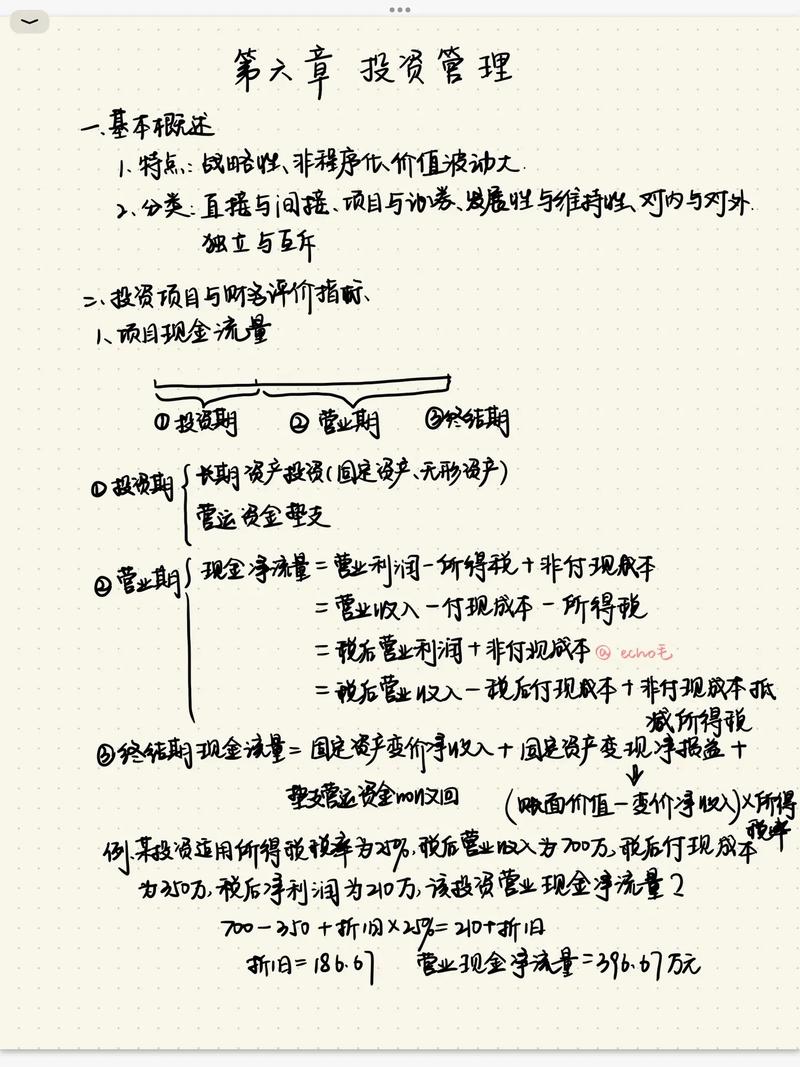 第六章 投资管理
一、基本概述
1、特点：战略性、非程序化、价值波动大.
2、分类：直接与间接、项目与证券、发展性与维持性、对内与对外.
独立与互斥
二、投资项目与财务评价指标、
1、项目现金流量
①投资期 ②营业期 ③终结期
①投资期 长期资产投资(固定资产、无形资产)
营运资金垫支
②营业期 现金净流量=营业利润-所得税+非付现成本
=营业收入-付现成本-所得税
=税后营业利润+非付现成本 @echo毛
=税后营业收入-税后付现成本+非付现成本抵
减所得税
③终结期现金流量=固定资产变价净收入+固定资产变现净损益+
垫支营运资金的收回 (账面价值-变价净收入)×所得
税率
例.某投资适用所得税税率为25%,税后营业收入为700万,税后付现成本
为350万,税后净利润为210万,该投资营业现金净流量?
700-350+折旧×25%=210+折旧
折旧=186.67 营业现金净流量=396.67万元